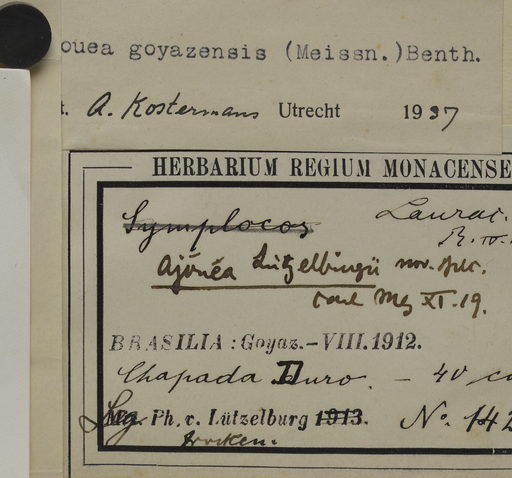 ouea goyazensis (Meissn.)Benth.
t. A. Kostermans Utrecht 1937
HERBARIUM REGIUM MONACENSE
Symplocos Laurac.
Ajóuéa Lützelburgii nov. spec.
Carl Mez XI. 19.
BRASILIA: Goyaz.–VIII. 1912.
Chapada Duro. – 40 c
Leg. Ph. v. Lützelburg 1913. No. 142
trocken.